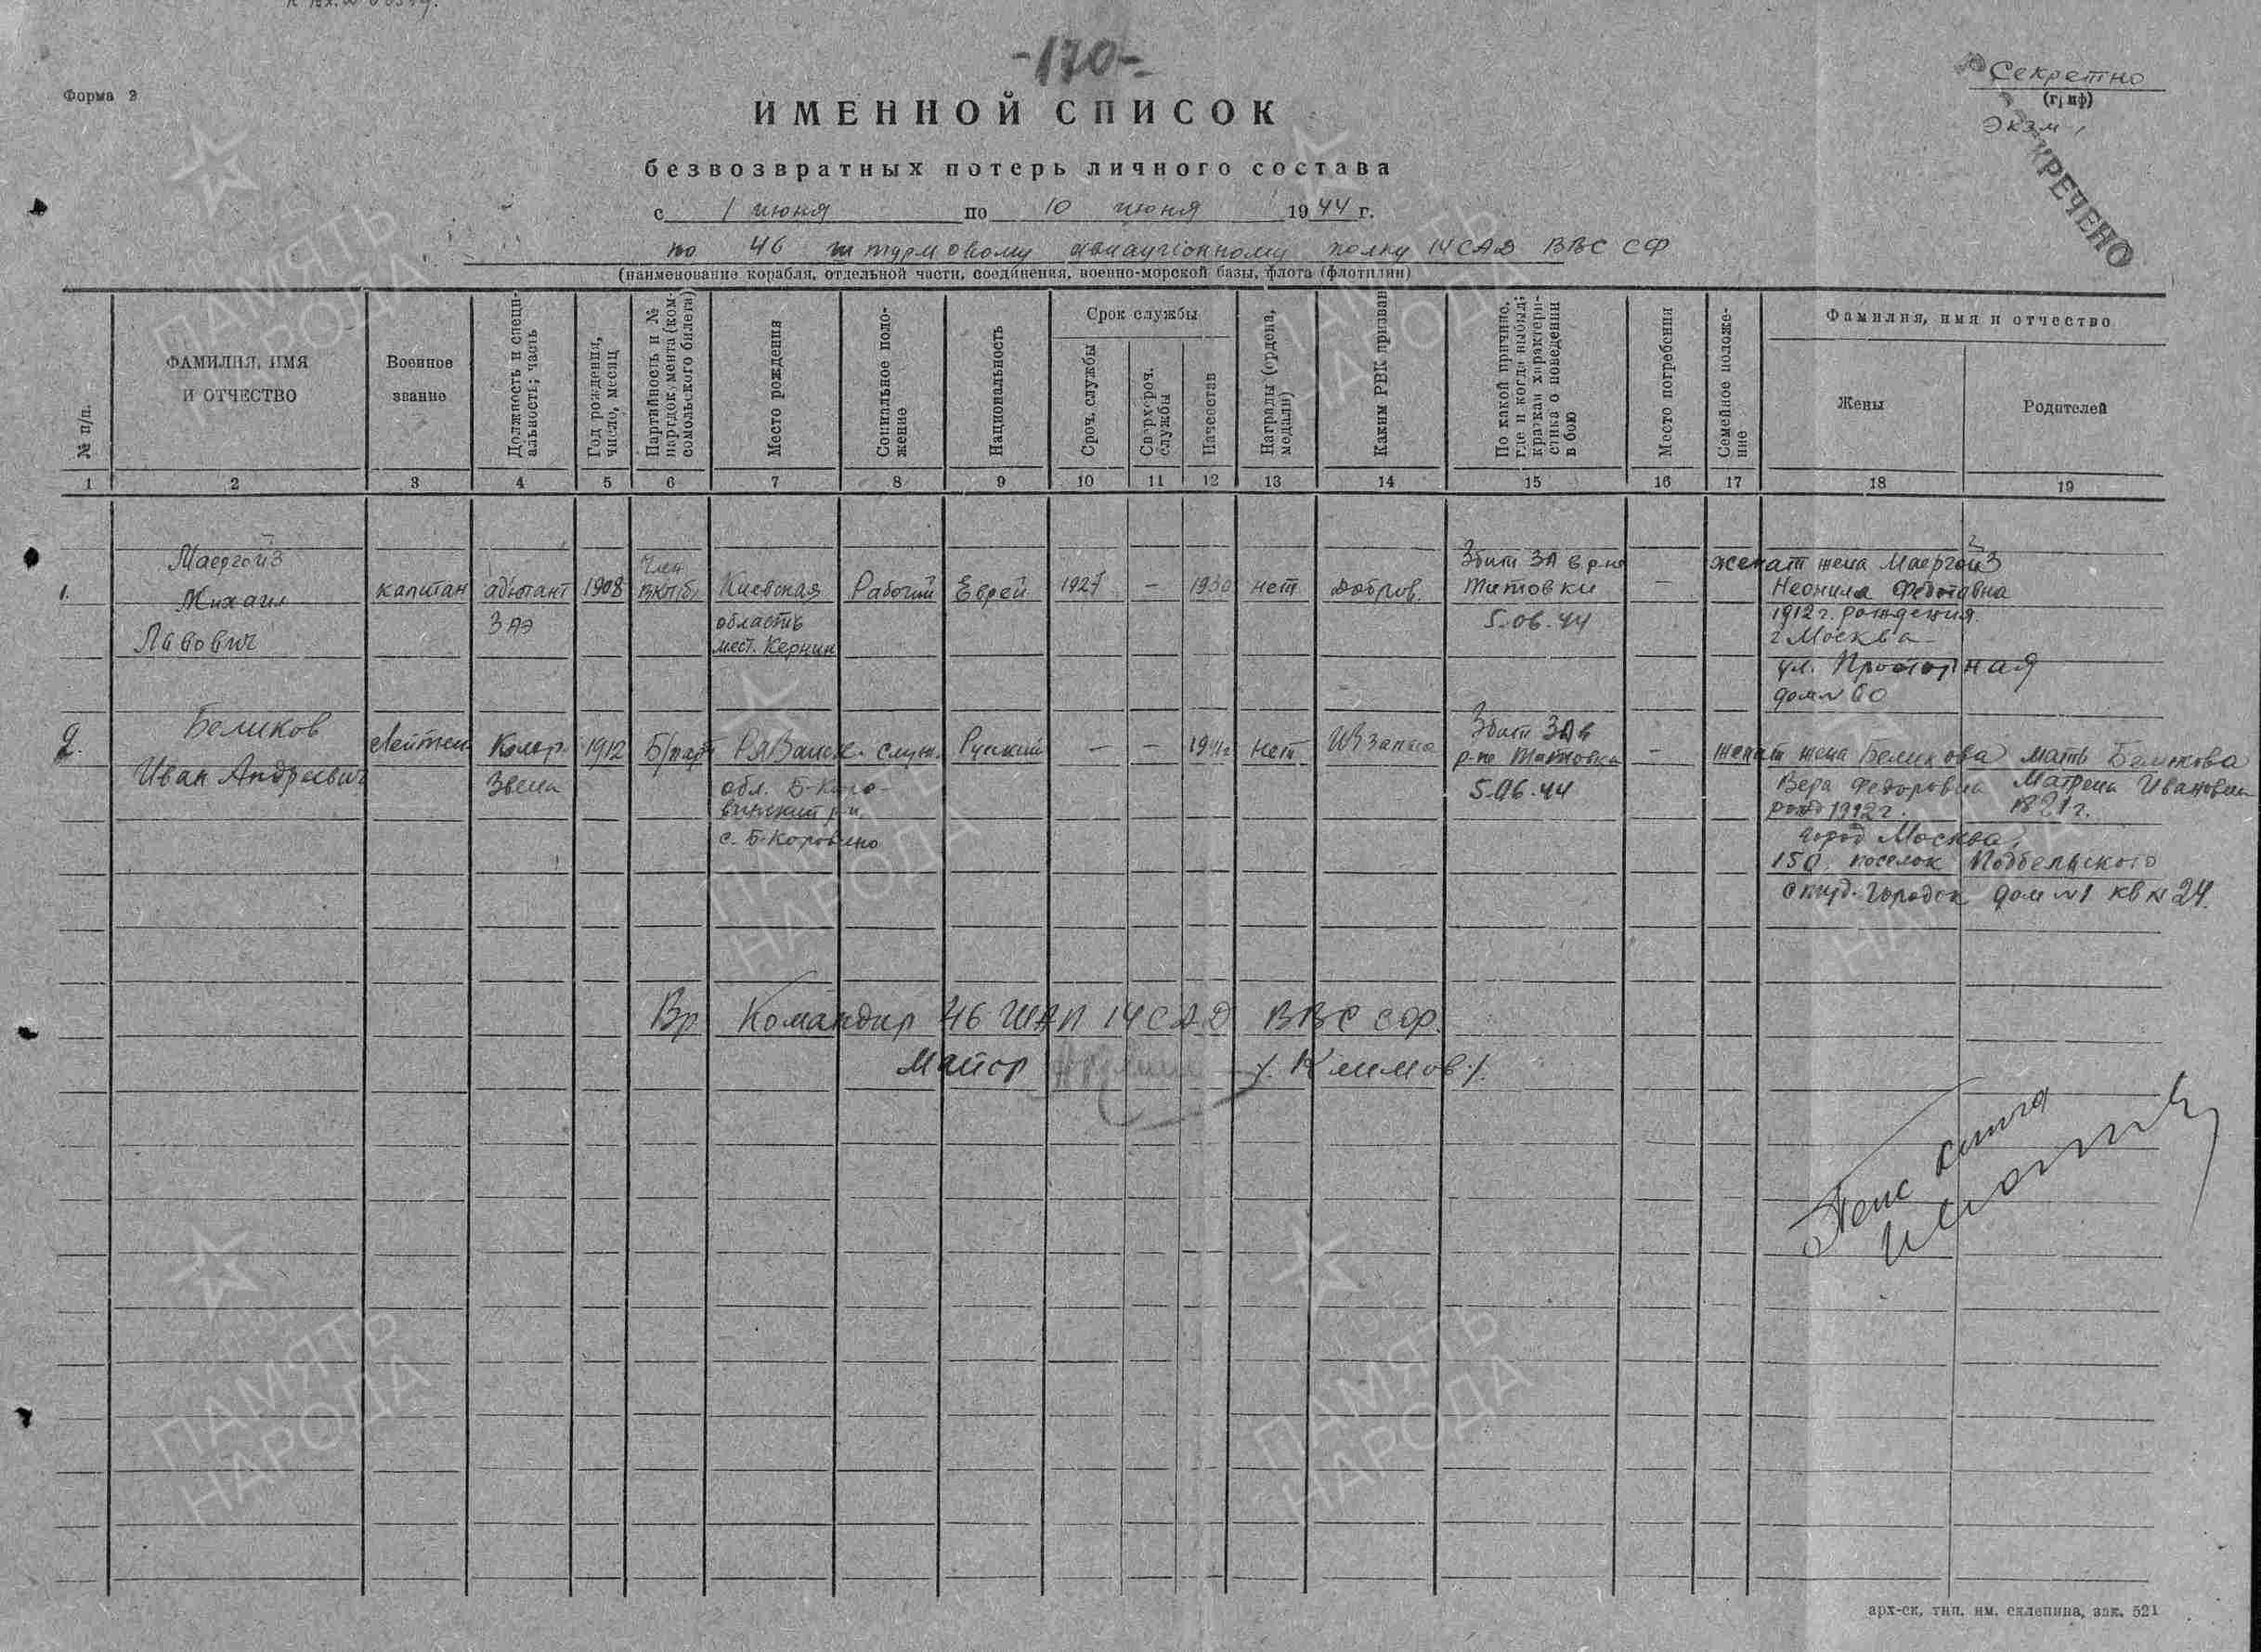 -170-
Форма 2
Секретно
(гриф)
Экз м 1
РАССЕКРЕЧЕНО
ИМЕННОЙ СПИСОК
безвозвратных потерь личного состава
с 1 июня по 10 июня 1944 г.
по 46 штурмовому авиационному полку 14 САД ВВС СФ
(наименование корабля, отдельной части, соединения, военно-морской базы, флота (флотилии)
№ п/п.
ФАМИЛИЯ, ИМЯ
И ОТЧЕСТВО
Военное
звание
Должность и специ-
альность; часть
Год рождения,
число, месяц
Партийность и №
партдокумента (ком-
сомольского билета)
Место рождения
Социальное поло-
жение
Национальность
Срок службы
Сроч. службы
Сверхсроч.
службы
Начсостав
Награды (ордена,
медали)
Каким РВК призван
По какой причине,
где и когда выбыл;
краткая характери-
стика о поведении
в бою
Место погребения
Семейное положе-
ние
Фамилия, имя и отчество
Жены
Родителей
1 2 3 4 5 6 7 8 9 10 11 12 13 14 15 16 17 18 19
1. Маергойз
Михаил
Лавович
капитан
адютант
3 АЭ
1908
Член
ВКП(б)
Киевская
область
мест. Кернин
Рабочий
Еврей
1927
—
1930
нет
Добров.
Збит ЗА в р-не
Титовки
5.06.44
—
женат жена Маергойз
Неонила Федотавна
1912 г. рождения
г Москва
ул. Просторная
дом № 60
2. Беликов
Иван Андреевич
Лейтен
Комар.
Звена
1912
Б/парт
Рязанск.
обл. Б-Коро-
винский р-н.
с. Б-Коровино
служ.
Русский
—
—
1941г
Нет
Из запаса
Збит ЗА в
р-не Титовка
5.06.44
—
женат жена Беликова
Вера Федоровна
рожд 1912 г.
мать Беликова
Матрена Ивановна
1821 г.
город Москва,
150. поселок Подбельского
студ. городок дом №1 кв № 24.
Вр Командир 46 ШАП 14 САД ВВС СФ.
Майор /. Климов./
арх-ск, тип. им. склепина, зак. 521
ПАМЯТЬ
НАРОДА
ПАМЯТЬ
НАРОДА
ПАМЯТЬ
НАРОДА
ПАМЯТЬ
НАРОДА
ПАМЯТЬ
НАРОДА